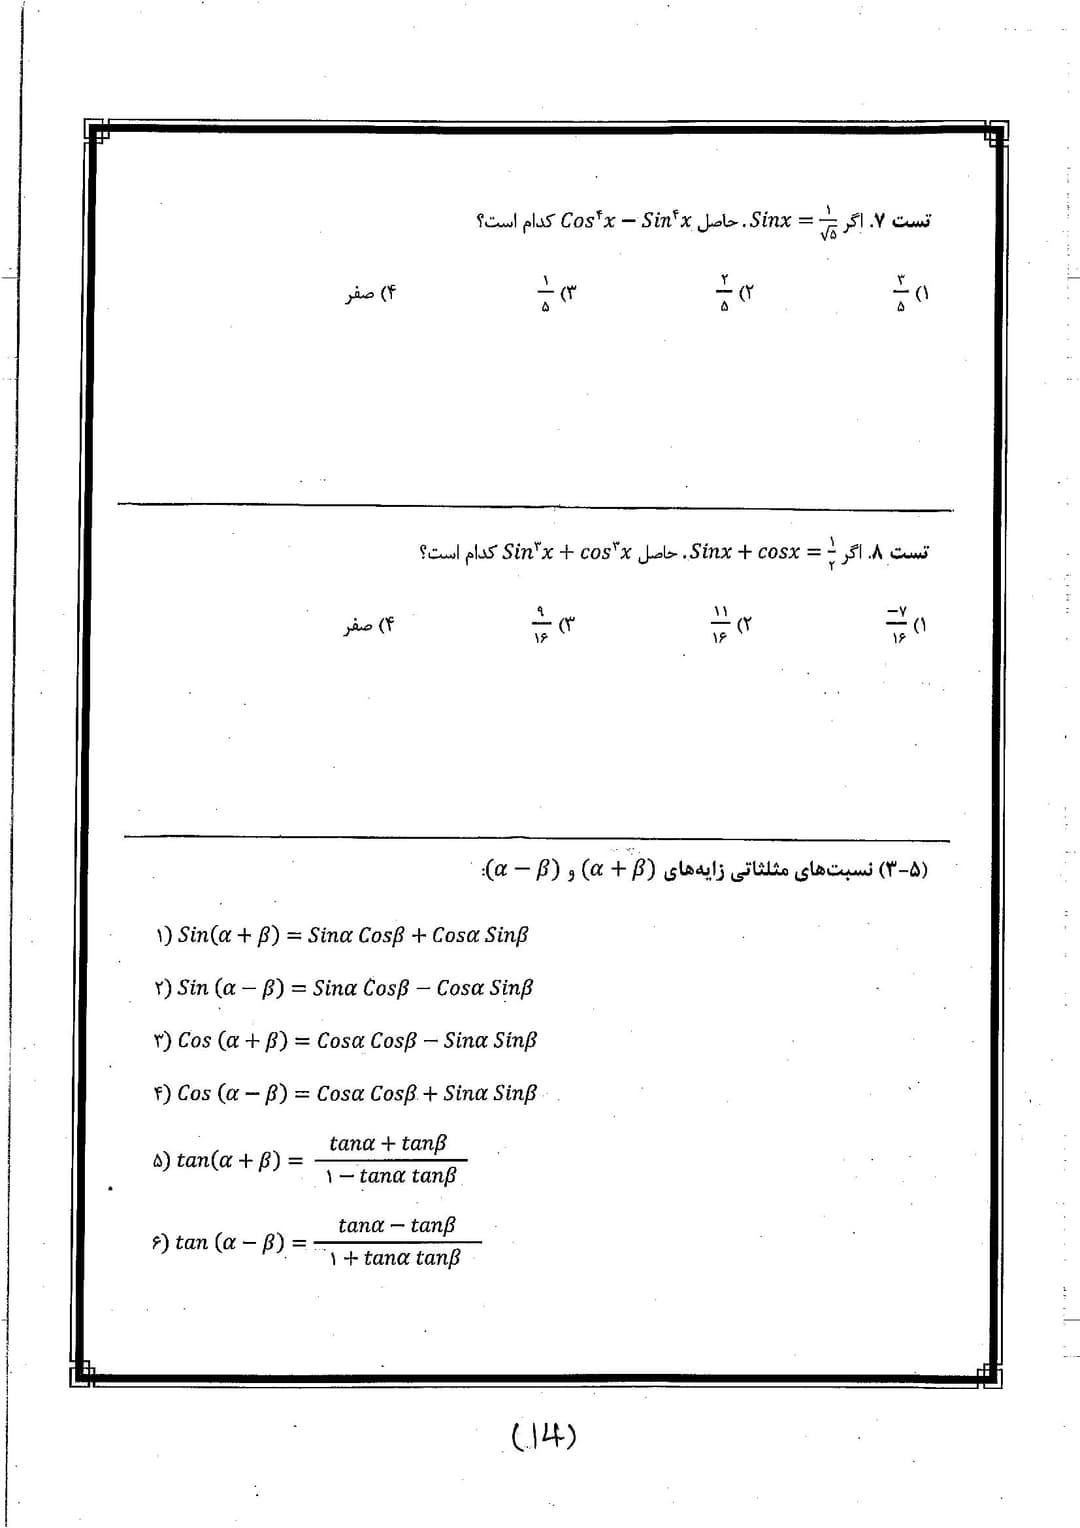 تست ۷. اگر Sinx = ۱/√۵. حاصل Cos⁴x − Sin⁴x کدام است؟
۱) ۳/۵ ۲) ۲/۵ ۳) ۱/۵ ۴) صفر
تست ۸. اگر Sinx + cosx = ۱/۲. حاصل Sin³x + cos³x کدام است؟
۱) −۷/۱۶ ۲) ۱۱/۱۶ ۳) ۹/۱۶ ۴) صفر
(۳-۵) نسبت‌های مثلثاتی زایه‌های (α + β) و (α − β):
۱) Sin(α + β) = Sinα Cosβ + Cosα Sinβ
۲) Sin (α − β) = Sinα Cosβ − Cosα Sinβ
۳) Cos (α + β) = Cosα Cosβ − Sinα Sinβ
۴) Cos (α − β) = Cosα Cosβ + Sinα Sinβ
۵) tan(α + β) = (tanα + tanβ)/(۱ − tanα tanβ)
۶) tan (α − β) = (tanα − tanβ)/(۱ + tanα tanβ)
(14)